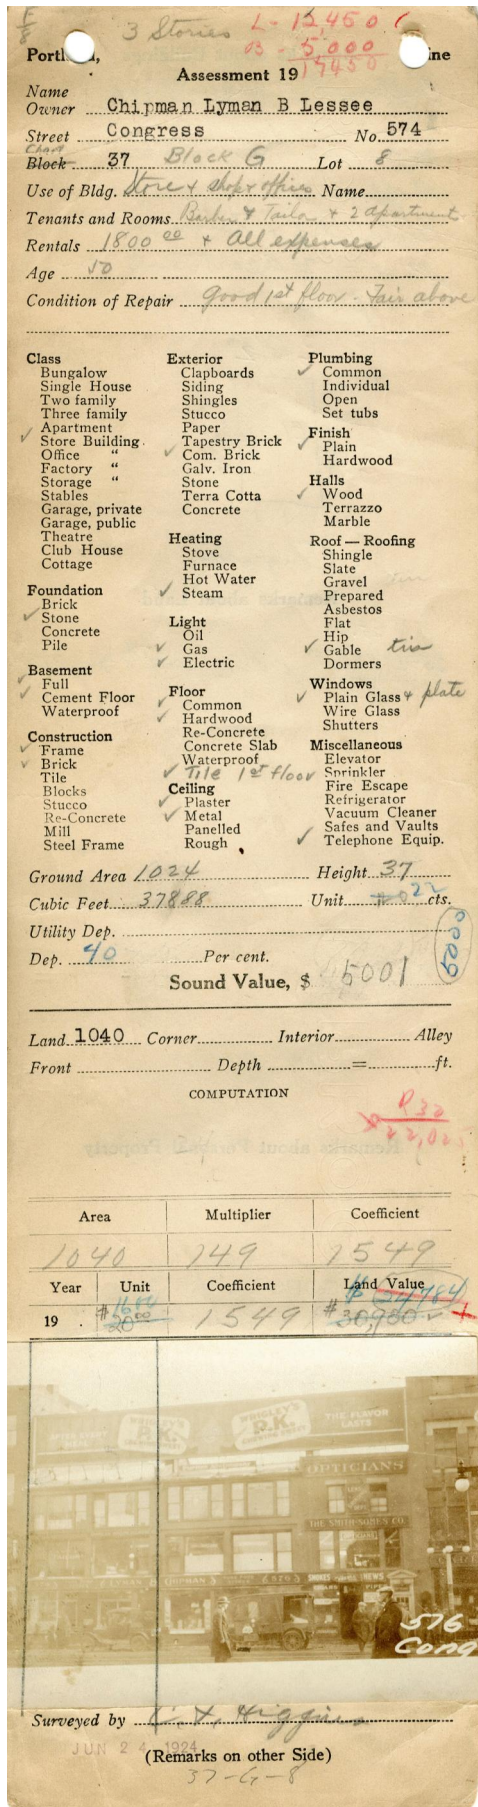 F/8
3 Stories
L - 12,450
B - 5,000
17450
Portland, Maine
Assessment 19
Name
Owner Chipman Lyman B Lessee
Street Congress No. 574
Chart
Block 37 Block G Lot 8
Use of Bldg. Store & shop & offices Name
Tenants and Rooms Barber & Tailor & 2 apartments
Rentals 1800 00 & All expenses
Age 50
Condition of Repair Good 1st floor - Fair above
Class
Bungalow
Single House
Two family
Three family
Apartment
✓ Store Building
Office "
Factory "
Storage "
Stables
Garage, private
Garage, public
Theatre
Club House
Cottage
Foundation
Brick
✓ Stone
Concrete
Pile
Basement
✓ Full
✓ Cement Floor
Waterproof
Construction
✓ Frame
✓ Brick
Tile
Blocks
Stucco
Re-Concrete
Mill
Steel Frame
Exterior
Clapboards
Siding
Shingles
Stucco
Paper
Tapestry Brick
✓ Com. Brick
Galv. Iron
Stone
Terra Cotta
Concrete
Heating
Stove
Furnace
Hot Water
✓ Steam
Light
Oil
✓ Gas
✓ Electric
Floor
✓ Common
✓ Hardwood
Re-Concrete
Concrete Slab
Waterproof
✓ Tile 1st floor
Ceiling
✓ Plaster
✓ Metal
Panelled
Rough
Plumbing
✓ Common
Individual
Open
Set tubs
Finish
✓ Plain
Hardwood
Halls
✓ Wood
Terrazzo
Marble
Roof — Roofing
Shingle
Slate
Gravel
Prepared
Asbestos
Flat
Hip
✓ Gable tin
Dormers
Windows
✓ Plain Glass & plate
Wire Glass
Shutters
Miscellaneous
Elevator
Sprinkler
Fire Escape
Refrigerator
Vacuum Cleaner
Safes and Vaults
✓ Telephone Equip.
Ground Area 1024 Height 37
Cubic Feet 37888 Unit 22 cts.
Utility Dep.
Dep. 40 Per cent.
5000
Sound Value, $ 5001
Land 1040 Corner Interior Alley
Front Depth = ft.
COMPUTATION
R32
22,025
Area Multiplier Coefficient
1040 149 1549
Year Unit Coefficient Land Value
$ 24784
19 $ 20 00 1549 $ 30,980
WRIGLEY'S
P.K.
WRIGLEY'S
P.K.
THE FLAVOR
LASTS
AFTER EVERY
MEAL
OPTICIANS
THE SMITH-SOMES CO.
576
Cong
Surveyed by C. H. Higgins
JUN 24 1924
(Remarks on other Side)
37-G-8